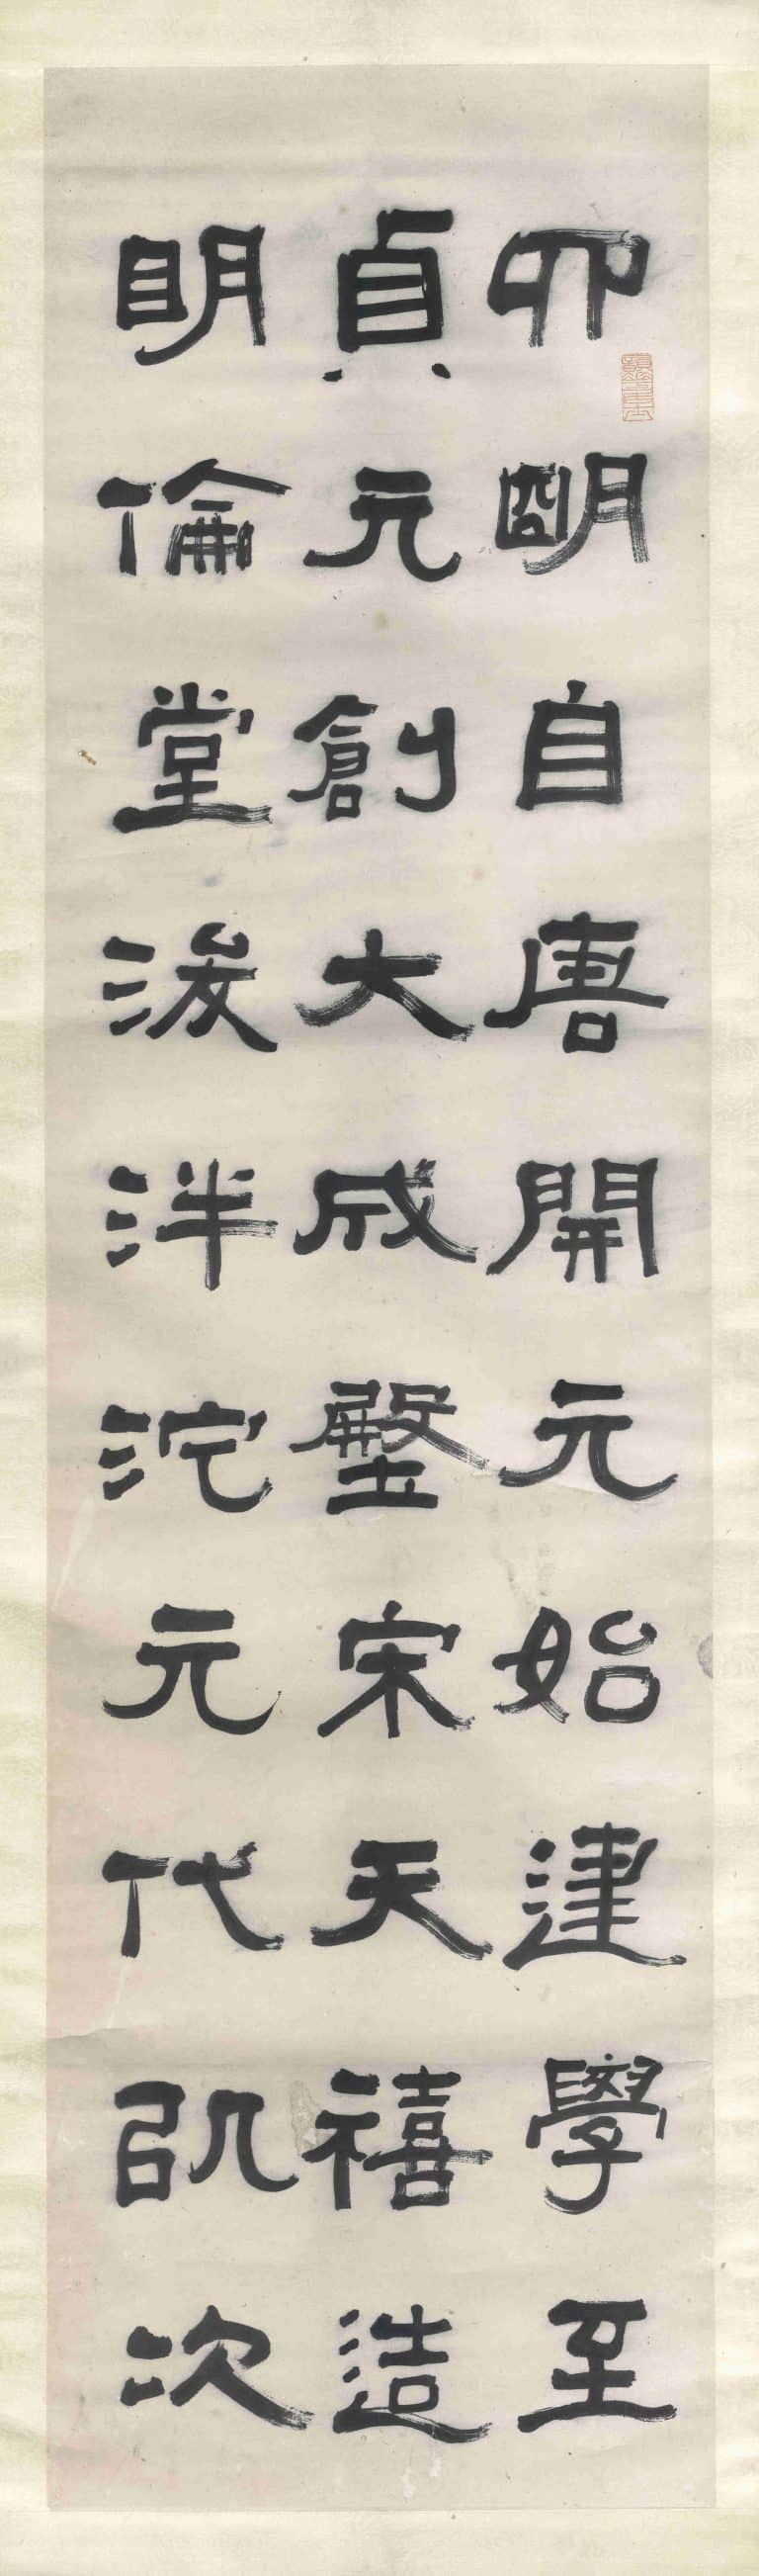 四明自唐開元始建學至
貞元創大成壂宋天禧造
明倫堂浚泮沱元代次